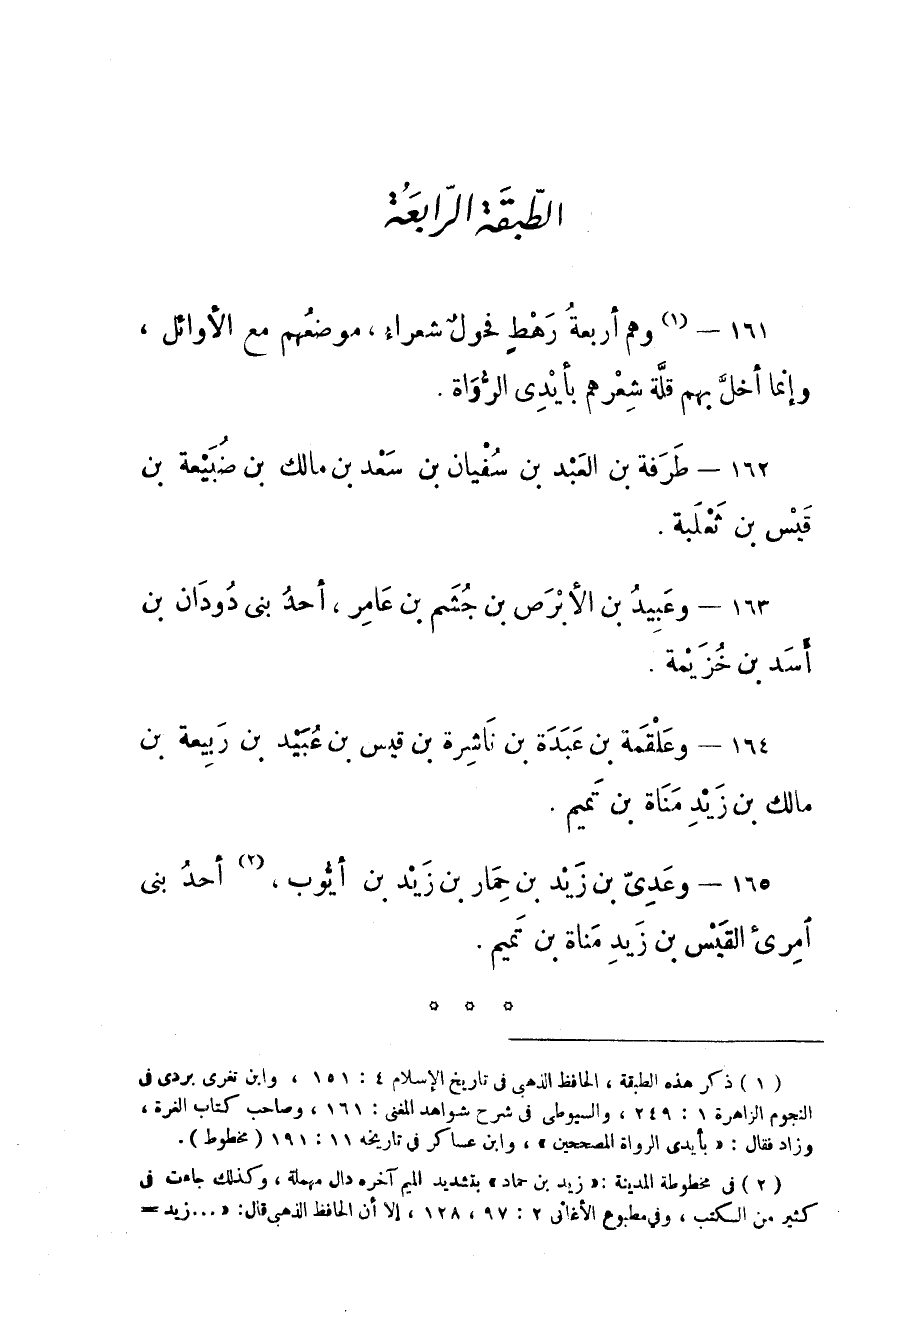 الطَّبقَة الرَّابعَةُ
١٦١ – (١) وهم أربعةُ رَهْطٍ فحولٌ شعراء ، موضعُهم مع الأوائل ،
وإنما أخلَّ بهم قلَّة شِعْرهم بأيْدِى الرُّوَاة .
١٦٢ – طَرَفة بن العَبْد بن سُفْيان بن سَعْد بن مالك بن ضُبَيْعة بن
قَيْس بن ثَعْلَبة .
١٦٣ – وعَبِيدُ بن الأبْرَص بن جُشَم بن عَامِر ، أحدُ بنى دُودَان بن
أَسَد بن خُزَيْمة .
١٦٤ – وعَلْقَمة بن عَبَدَة بن نَاشِرة بن قيس بن عُبَيْد بن رَبِيعة بن
مالك بن زَيْدِ مَنَاة بن تَميم .
١٦٥ – وعَدِىّ بن زَيْد بن حِمَار بن زَيْد بن أيُّوب ، (٢) أحدُ بنى
ٱمرِئ القَيْس بن زَيدِ مَناة بن تَميم .
☼ ☼ ☼
( ١ ) ذكر هذه الطبقة ، الحافظ الذهبى فى تاريخ الإسلام ٤ : ١٥١ ، وابن تغرى بردى فى
النجوم الزاهرة ١ : ٢٤٩ ، والسيوطى فى شرح شواهد المغنى : ١٦١ ، وصاحب كتاب الغرة ،
وزاد فقال : « بأيدى الرواة المصححين » ، وابن عساكر فى تاريخه ١١ : ١٩١ ( مخطوط ) .
( ٢ ) فى مخطوطة المدينة : « زيد بن حماد » بتشديد الميم آخره دال مهملة ، وكذلك جاءت فى
كثير من الكتب ، وفى مطبوع الأغانى ٢ : ٩٧ ، ١٢٨ ، إلا أن الحافظ الذهبى قال : « ... زيد =